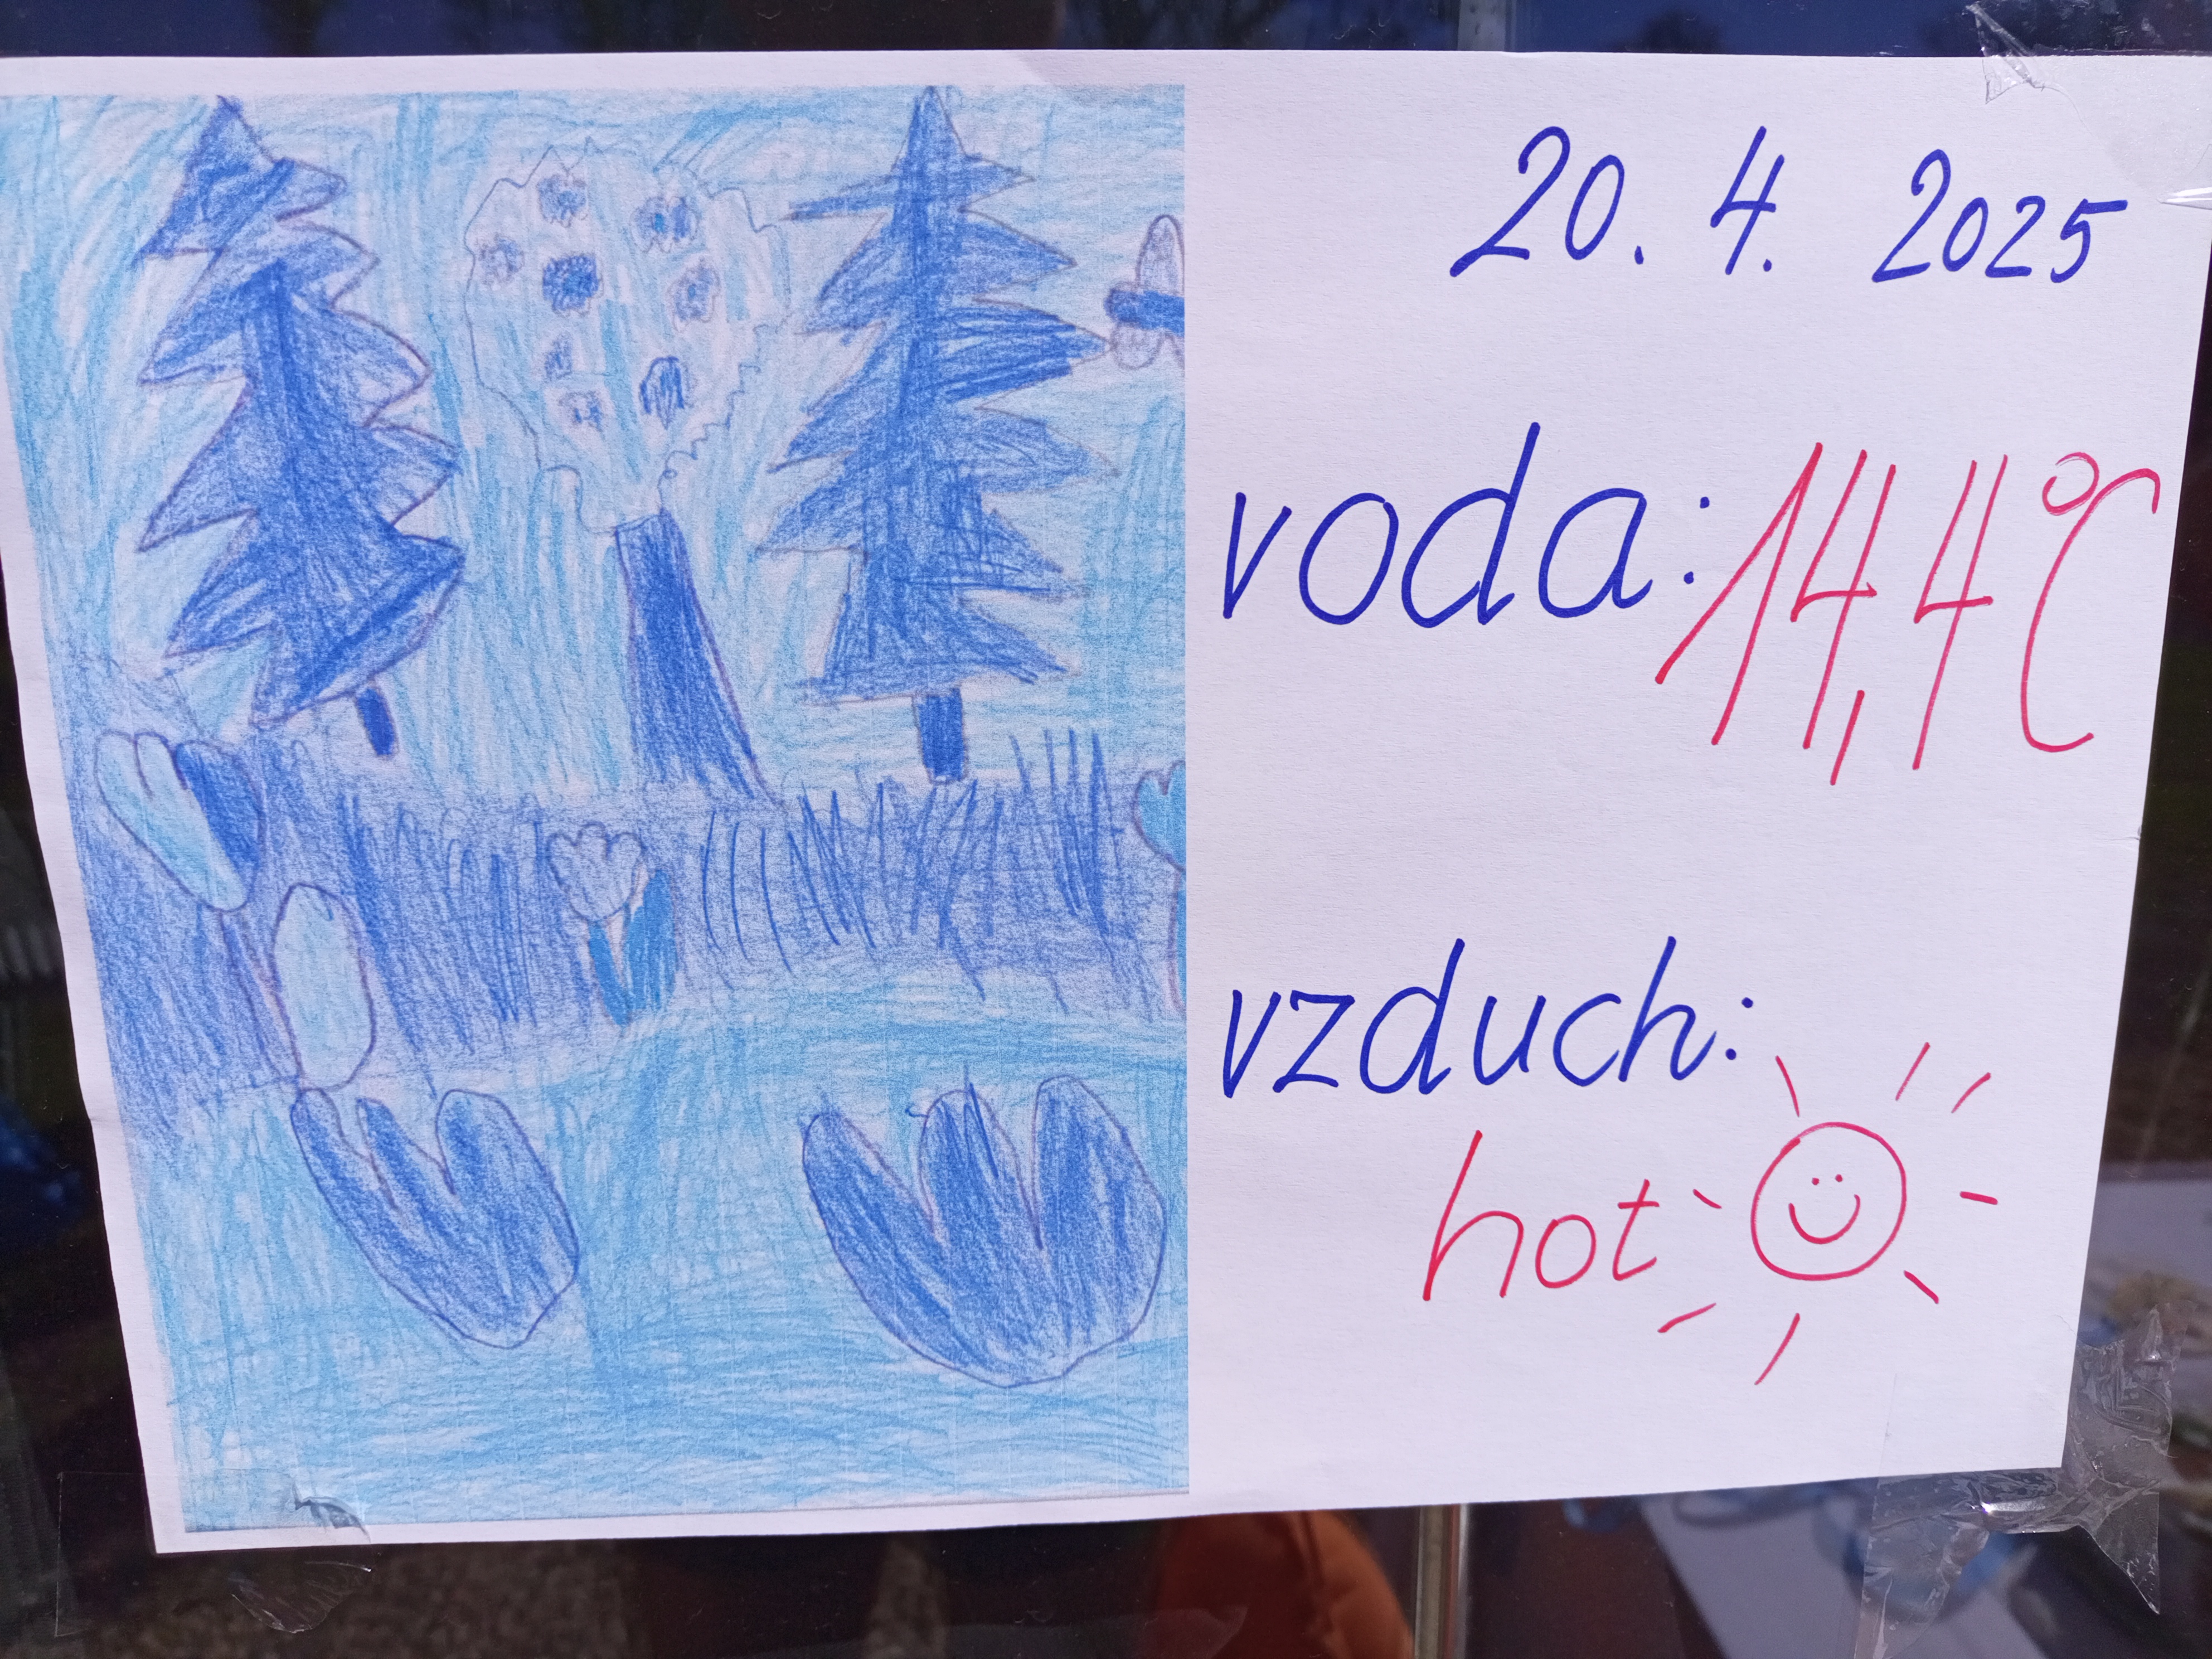 20. 4. 2025
voda: 14,4℃
vzduch:
hot